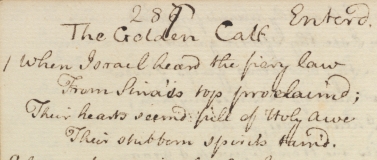 286 Enterd.
The Golden Calf
1 When Israel heard the fiery law
From Sina's top proclaim'd;
Their hearts seem'd full of Holy awe
Their stubborn spirits tam'd.